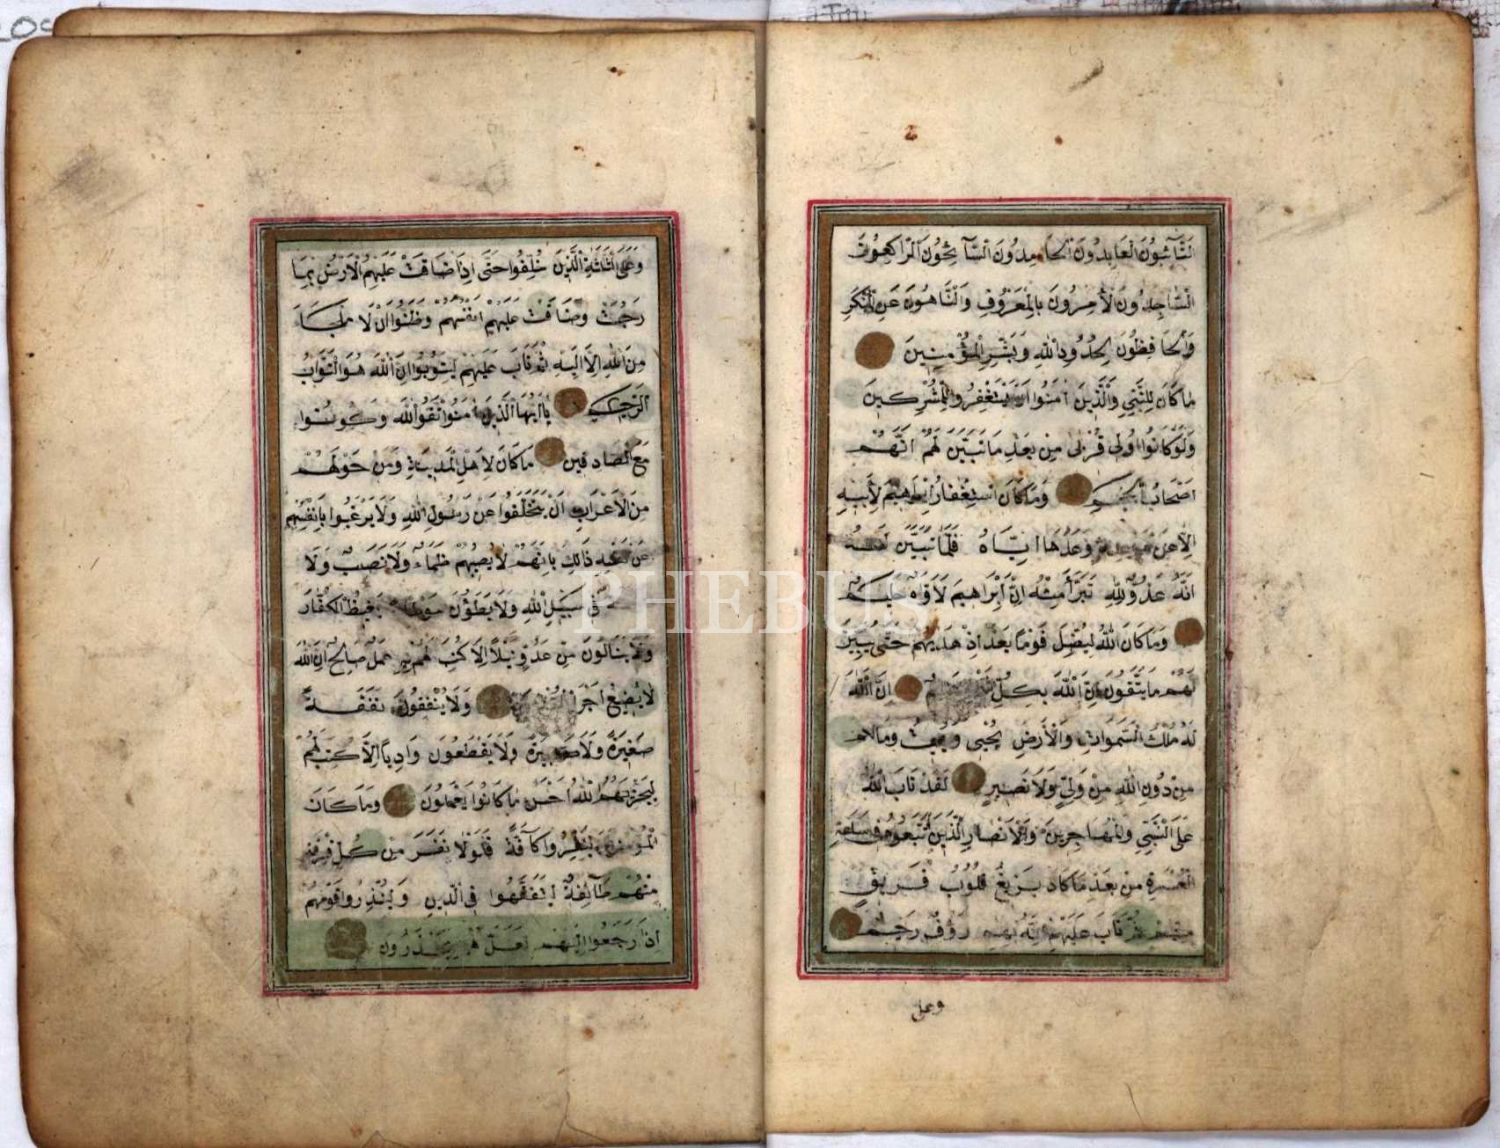 التائبون العابدون الحامدون السائحون الراكعون
الساجدون الآمرون بالمعروف والناهون عن المنكر
والحافظون لحدود الله وبشر المؤمنين
ماكان للنبي والذين امنوا ان يستغفروا للمشركين
ولوكانوا اولى قربى من بعد ما تبين لهم انهم
اصحاب الجحيم وماكان استغفار ابراهيم لأبيه
الا عن موعدة وعدها اياه فلما تبين له
انه عدو لله تبرأ منه ان ابراهيم لاواه حليم
وماكان الله ليضل قوما بعد اذ هديهم حتى يبين
لهم ما يتقون ان الله بكل ان الله
له ملك السموات والأرض يحيى ويميت ومالكم
من دون الله من ولي ولا نصير لقد تاب الله
على النبي والمهاجرين والانصار الذين اتبعوه في ساعة
العسرة من بعد ماكاد يزيغ قلوب فريق
منهم ثم تاب عليهم انه بهم رؤف رحيم
وعلى
وعلى الثلثة الذين خلفوا حتى اذا ضاقت عليهم الارض بما
رحبت وضاقت عليهم انفسهم وظنوا ان لا ملجاء
من الله الا اليه ثم تاب عليهم ليتوبوا ان الله هو التواب
الرحيم ياايها الذين امنوا اتقوا الله وكونوا
مع الصادقين ماكان لاهل المدينة ومن حولهم
من الاعراب ان يتخلفوا عن رسول الله ولا يرغبوا بانفسهم
عن نفسه ذلك بانهم لا يصيبهم ظماء ولا نصب ولا
في سبيل الله ولا يطؤن موطئا يغيظ الكفار
ولا ينالون من عدو نيلا الا كتب لهم به عمل صالح ان الله
لا يضيع اجر ولا ينفقون نفقة
صغيرة ولا كبيرة ولا يقطعون واديا الا كتب لهم
ليجزيهم الله احسن ما كانوا يعملون وماكان
المؤمنون لينفروا كافة فلولا نفر من كل فرقة
منهم طائفة ليتفقهوا في الدين ولينذروا قومهم
اذا رجعوا اليهم لعلهم يحذرون
PHEBUS